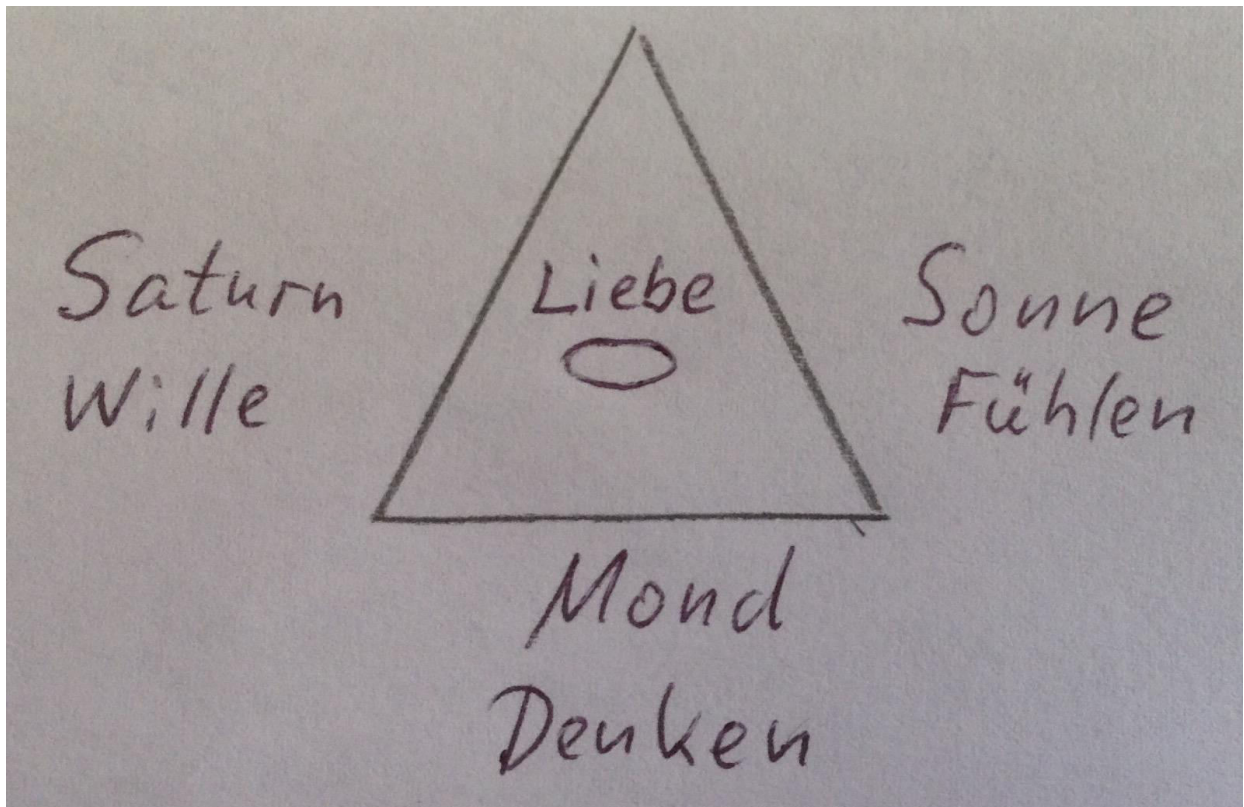 Saturn
Wille
Liebe
Sonne
Fühlen
Mond
Denken